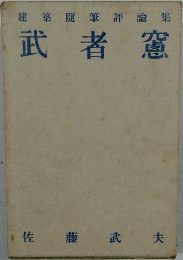 建築随筆評論集
武者窓
佐藤武夫